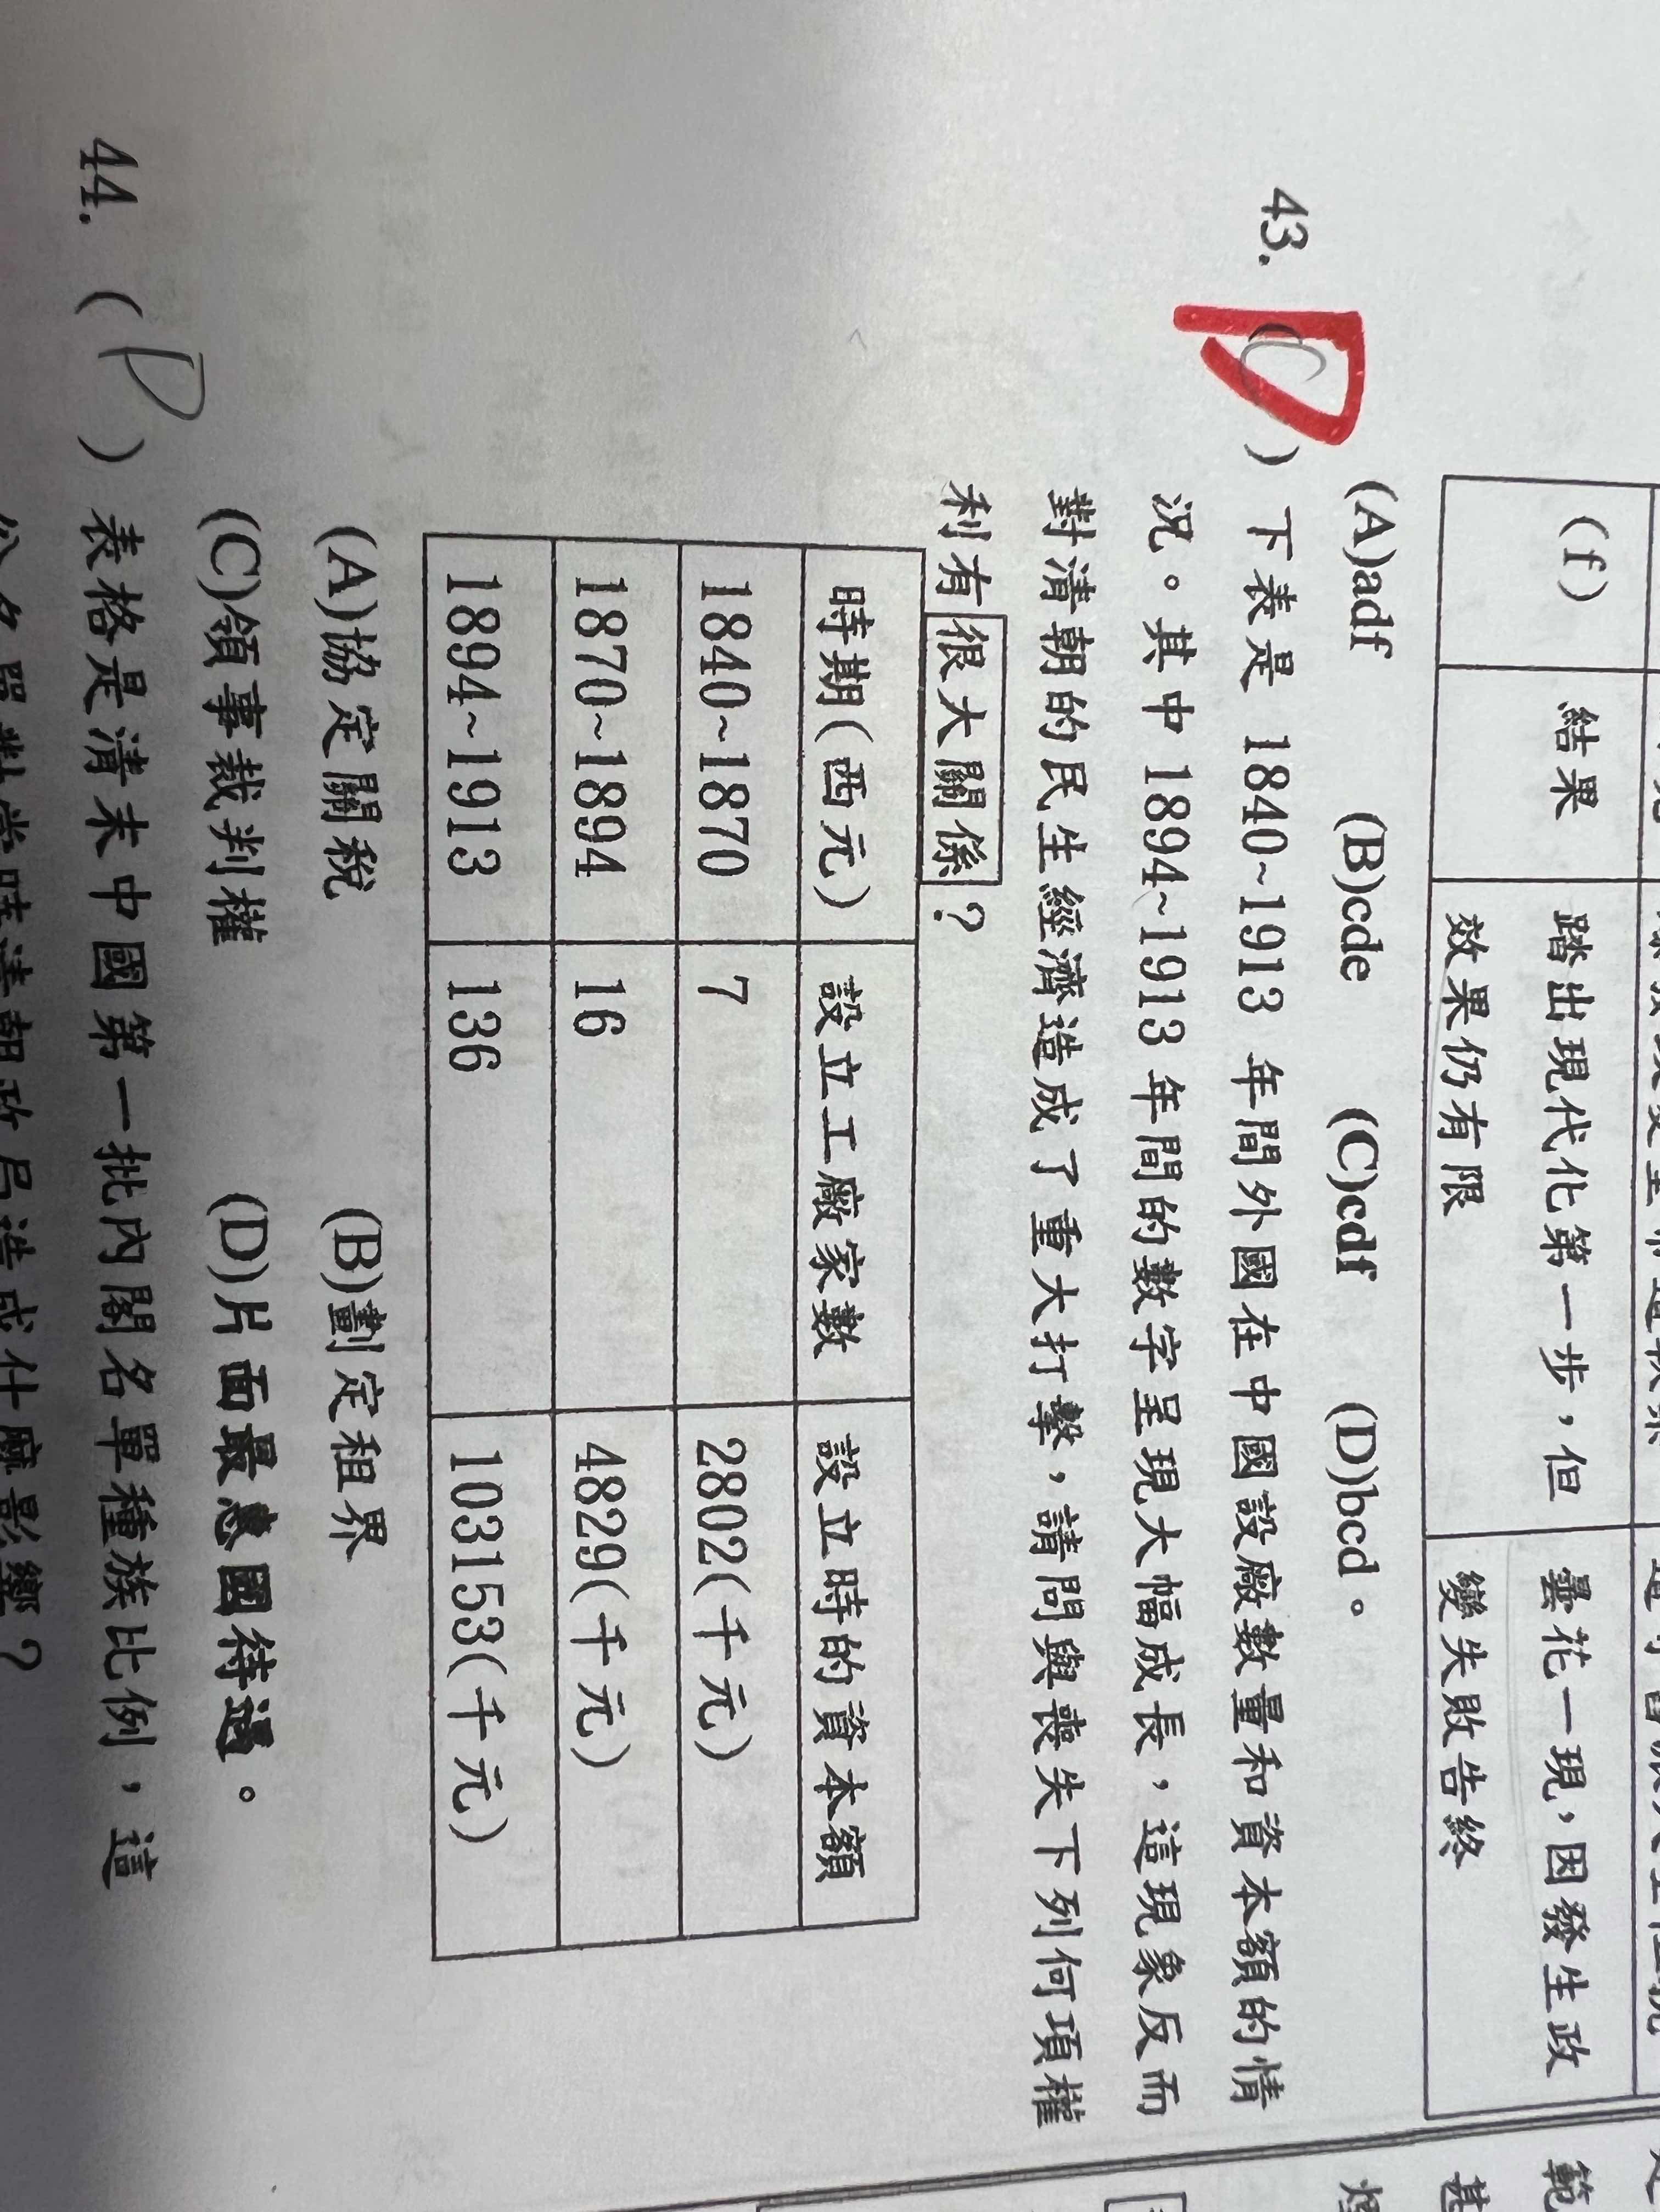 (f) 結果 踏出現代化第一步，但 曇花一現，因發生政
效果仍有限 變失敗告終
(A)adf (B)cde (C)cdf (D)bcd。
43. (D) 下表是 1840~1913 年間外國在中國設廠數量和資本額的情
況。其中 1894~1913 年間的數字呈現大幅成長，這現象反而
對清朝的民生經濟造成了重大打擊，請問與喪失下列何項權
利有很大關係？
時期(西元) 設立工廠家數 設立時的資本額
1840~1870 7 2802(千元)
1870~1894 16 4829(千元)
1894~1913 136 103153(千元)
(A)協定關稅 (B)劃定租界
(C)領事裁判權 (D)片面最惠國待遇。
44. (D) 表格是清末中國第一批內閣名單種族比例，這
份名單對當時清朝政局造成什麼影響？